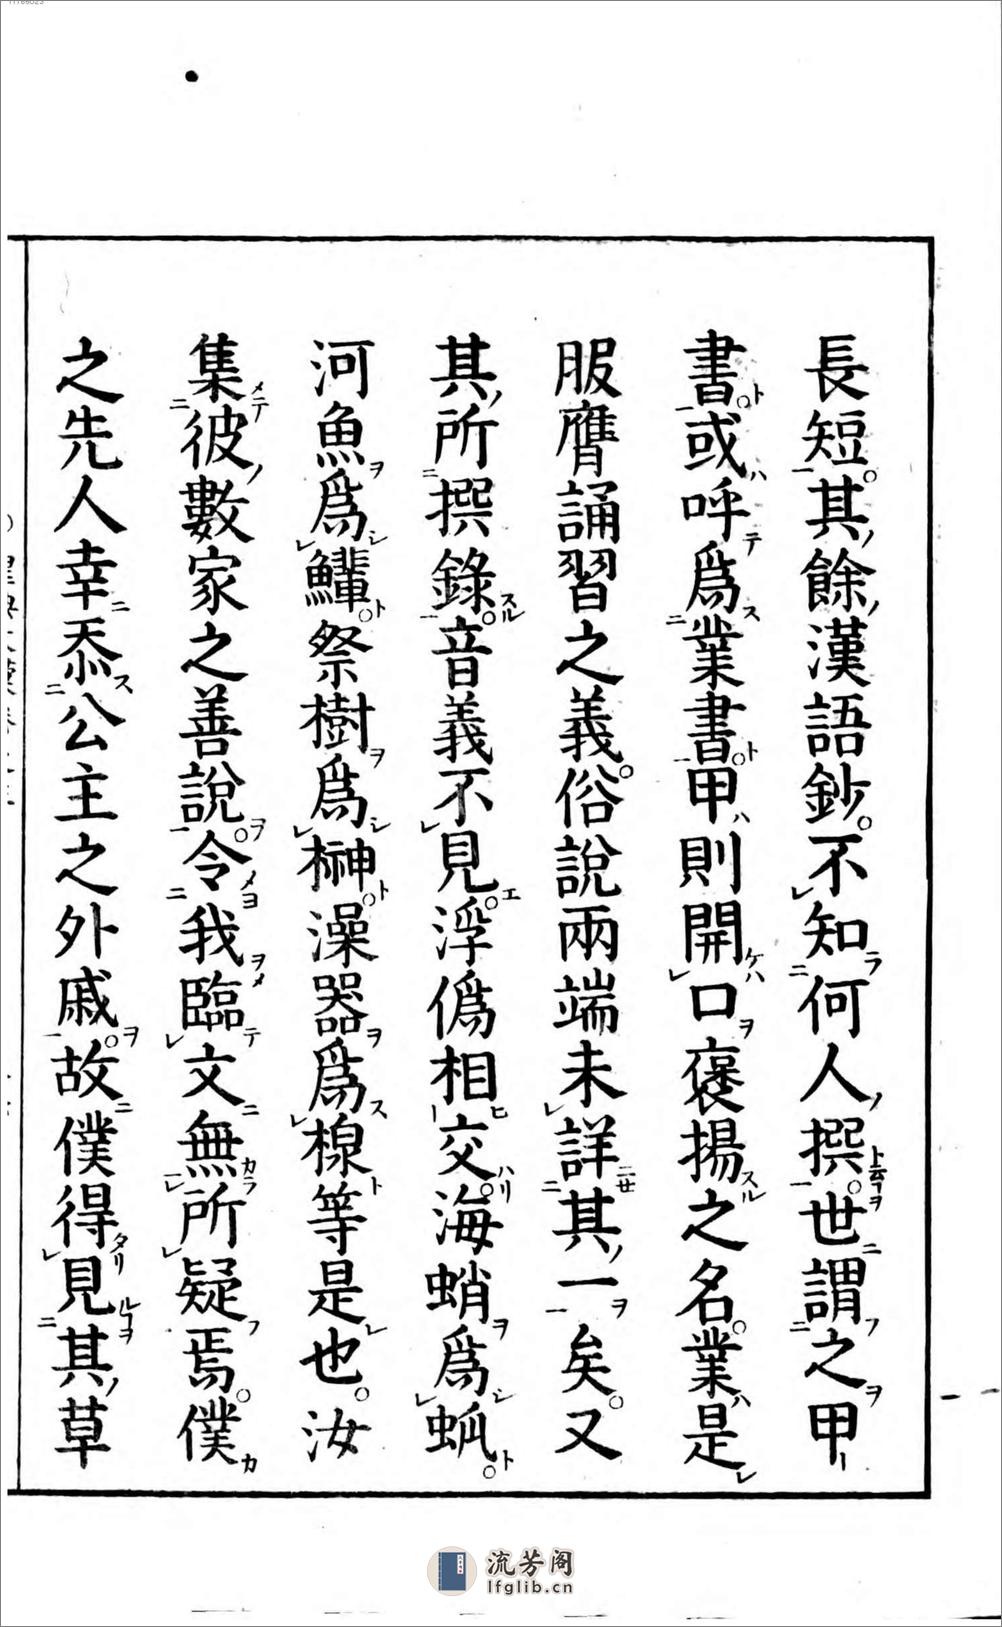 長短其餘漢語鈔不知何人撰世謂之甲
書或呼爲業書甲則開口褒揚之名業是
服膺誦習之義俗說兩端未詳其一矣又
其所撰錄音義不見浮僞相交海蛸爲䖣
河魚爲鱓祭樹爲榊澡器爲楾等是也汝
集彼數家之善說令我臨文無所疑焉僕
之先人幸忝公主之外戚故僕得見其草
流芳阁
lfglib.cn